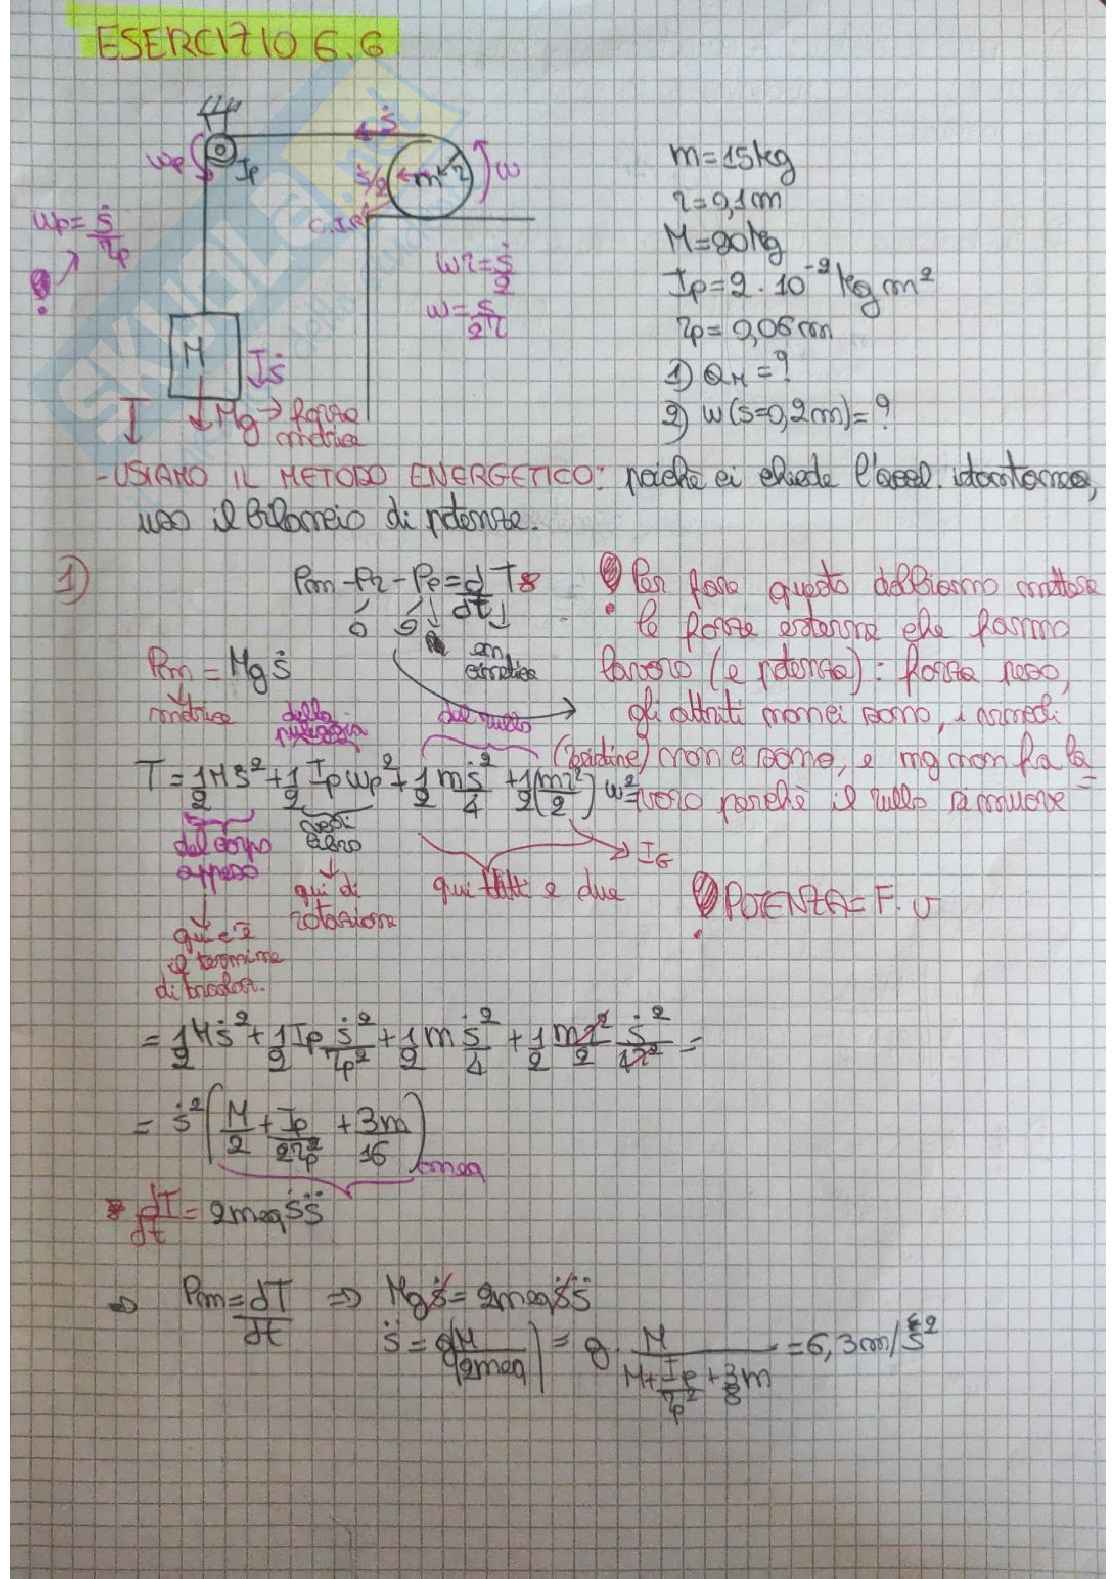 ESERCIZIO 6.6
ṡ
ωp
Ip
ṡ/2
m
r
ω
C.I.R.
ωp = ṡ/rp
ωr = ṡ/2
ω = ṡ/2r
M
ṡ
Mg → forza
motrice
m = 15 kg
r = 0,1 m
M = 20 kg
Ip = 2 · 10⁻² kg m²
rp = 0,06 m
1) aM = ?
2) ω (s = 0,2 m) = ?
- USIAMO IL METODO ENERGETICO: poichè ci chiede l'accel. istantanea,
uso il bilancio di potenze.
1)
Pm - Pr - Pp = d/dt T
0 0
en.
cinetica
Per fare questo dobbiamo mettere
le forze esterne che fanno
lavoro (e potenza): forza peso,
gli attriti non ci sono, i
(bardine) non ci sono, e mg non fa la-
voro perchè il rullo si muove
Pm = Mg ṡ
motrice
della
puleggia
del rullo
T = 1/2 M ṡ² + 1/2 Ip ωp² + 1/2 m ṡ²/4 + 1/2 (mr²/2) ω² =
del corpo
appeso
qui c'è
il termine
di traslaz.
qui di
rotazione
qui tutti e due
→ IG
POTENZA = F · v
= 1/2 M ṡ² + 1/2 Ip ṡ²/rp² + 1/2 m ṡ²/4 + 1/2 mr²/2 ṡ²/4r² =
= ṡ² (M/2 + Ip/2rp² + 3m/16)
meq
dT/dt = 2 meq ṡ s̈
⇒ Pm = dT/dt ⇒ Mg ṡ = 2 meq ṡ s̈
s̈ = g (M/2meq) = g · M/(M + Ip/rp² + 3/8 m) = 6,3 m/s²